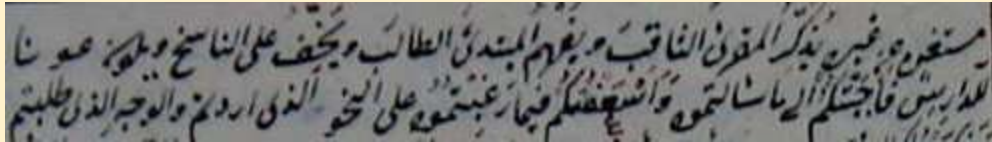 مستغن عن غيره يذكر المقرئ الثاقب ويفهم المبتدئ الطالب ويخف على الناسخ ويكون عونا
للدارس فأجبتكم الى ما سالتموه وأسعفتكم فيما رغبتموه على النحو الذى اردتم والوجه الذى طلبتم